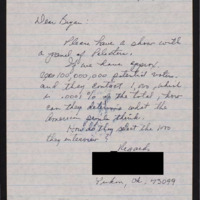 Dear Bryan
Please have a show with
a panel of Pollsters.
If we have approx.
100,000,000 potential voters,
and they contact 1,000, which
is .001% of the total, how
can they determine what the
American people think.
How do they select the
they interview?
Regards
Oh, 43099